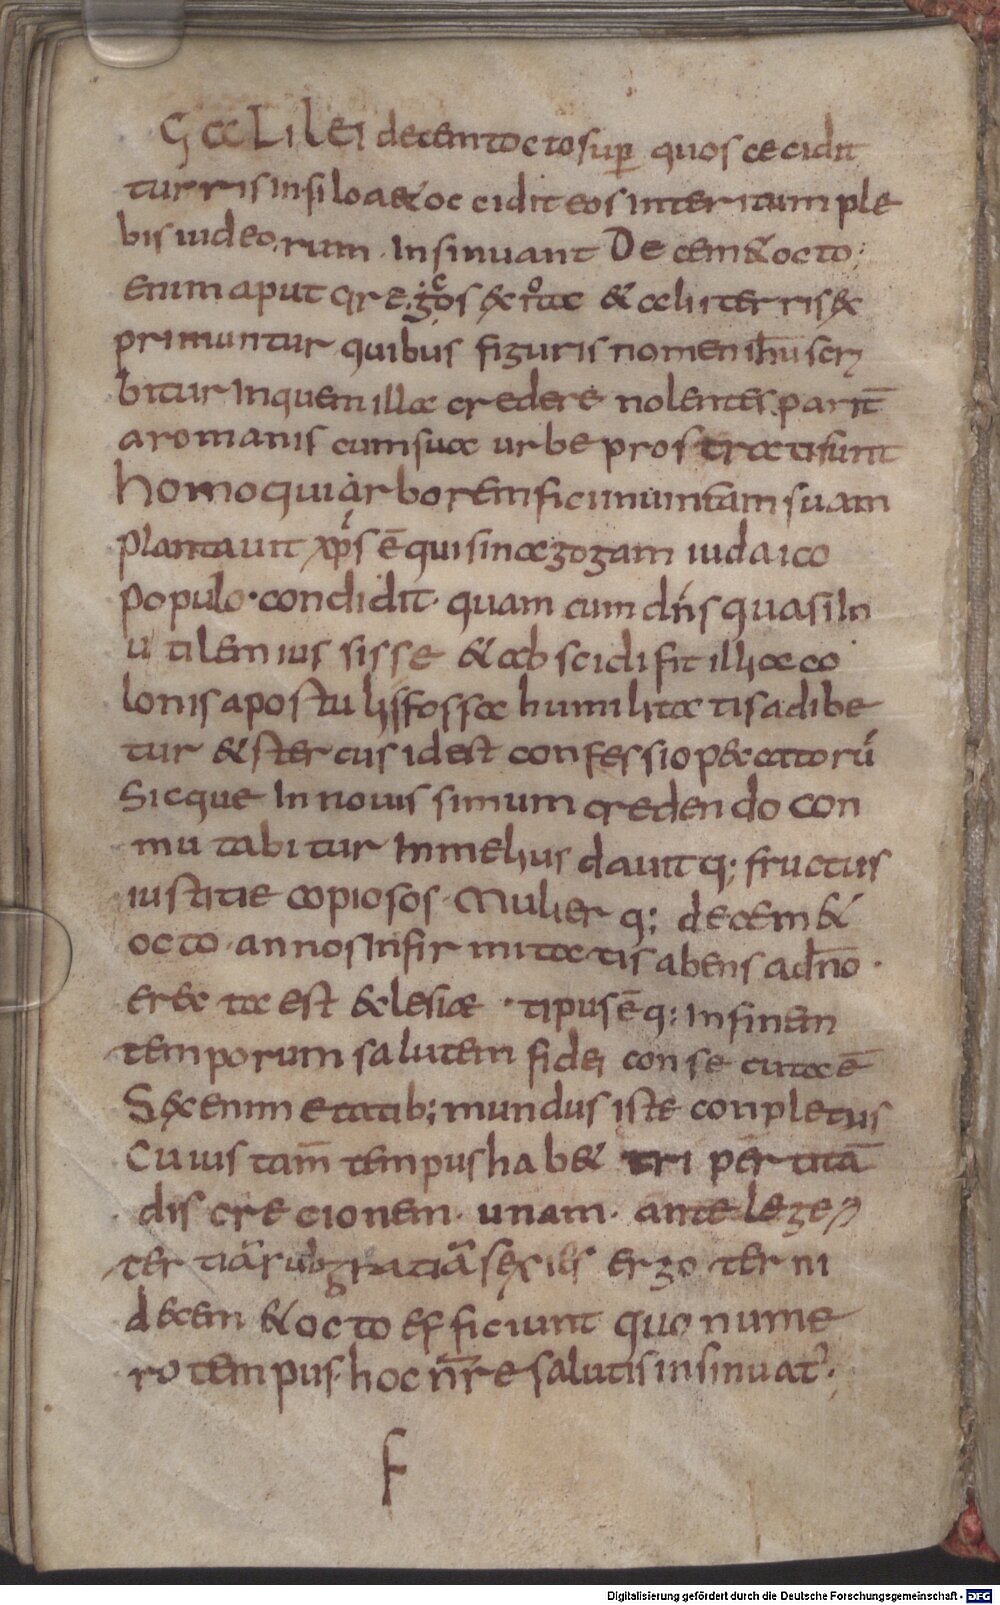 Galilei decem octo sup̄ quos cecidit
turris insiloa & occidit eos interitum ple
bis iudeorum. Insinuant Decem & octo
enim aput gregos ex iota & alii terris ex
primuntur quibus figuris nomen ih̄u scri
bitur Inquem illa credere nolentes parit̄
aromanis cumsua urbe prostrati sunt
homo qui arborem fici inuineam suam
plantauit xp̄s ē qui sinagogam iudaico
populo. condidit. quam cum dn̄s quasi in
utilem iussisse & abscidi fit illi a co
lonis apostulis fossa humilitatis adibe
tur & stercus id est confessio peccatorū
Sicque In nouissimum credendo con
mutabitur Inmelius dauitq; fructus
iustitie copiosos. Mulier q; decem &
octo. annos Infirmitatis abens ad n̄o.
erecta est eclesiae. tipus ē q; Infinem
temporum salutem fidei consecuta ē
Sex enim etatib; mundus iste conpletus
Cuius tam̄ tempus hab& tri pertitā
discrecionem. unam. ante lege
tertiā sub gratiā sexies ergo terni
decem & octo efficiunt quo nume
ro tempus. hoc n̄re salutis insinuat̉.
F
Digitalisierung gefördert durch die Deutsche Forschungsgemeinschaft - DFG